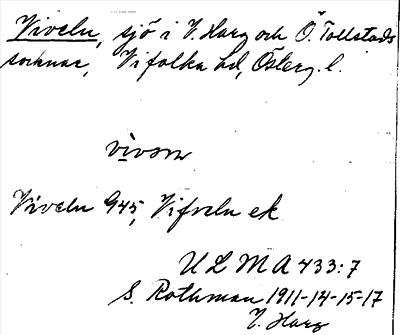 Viveln, sjö i V. Harg och Ö. Tollstads
socknar, Vifolka hd, Österg. l.
Viveln G45, Vifveln ek
ULMA 433:7
S. Rothman 1911-14-15-17
V. Harg